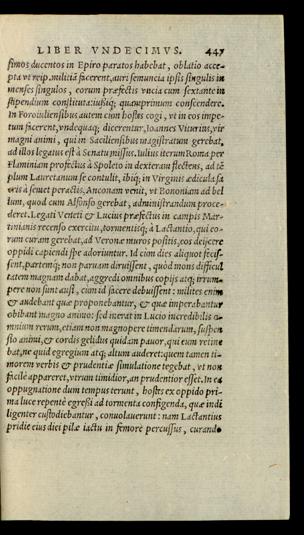 LIBER VNDECIMVS. 447
simos ducentos in Epiro paratos habebat, oblatio acce-
pta vt reip. militiã facerent, auri semuncia ipsis singulis in
menses singulos, eorum præfectis vncia cum sextante in
stipendium constituta: iussiq; quamprimum conscendere.
In Foroiuliensibus autem cùm hostes cogi, vt in eos impe-
tum facerent, vndequaq; dicerentur, Ioannes Viturius, vir
magni animi, qui in Saciliensibus magistratum gerebat,
ad illos legatus est à Senatu missus. Iulius iterum Roma per
Flaminiam profectus à Spoleto in dexteram flectens, ad tẽ
plum Lauretanum se contulit, ibiq; in Virginis ædicula sa
cris à se vet peractis. Anconam venit, vt Bononiam ad bel
lum, quod cum Alfonso gerebat, administrandum proce-
deret. Legati Veneti & Lucius præfectus in campis Mar-
tinianis recenso exercitu, tormentisq; à Lactantio, qui eo-
rum curam gerebat, ad Veronæ muros positis, eos deijcere
oppidi capiendi spe adoriuntur. Id cùm dies aliquot fecis-
sent, partemq; non paruam diruissent, quòd mons difficul
tatem magnam dabat, aggredi omnibus copijs atq; irrum-
pere non sunt ausi, cùm id facere debuissent: milites enim
& audebant quæ proponebantur, & quæ imperabantur
obibant magno animo: sed inerat in Lucio incredibilis o-
mnium rerum, etiam non magnopere timendarum, suspen
sio animi, & cordis gelidus quidam pauor, qui eum retine
bat, ne quid egregium atq; altum auderet: quem tamen ti-
morem verbis & prudentiæ simulatione tegebat, vt non
facilè appareret, vtrum timidior, an prudentior esset. In ea
oppugnatione dum tempus terunt, hostes ex oppido pri-
ma luce repentè egressi ad tormenta configenda, quæ indi
ligenter custodiebantur, conuolauerunt: nam Lactantius
pridie eius diei pilæ iactu in femore percussus, curando